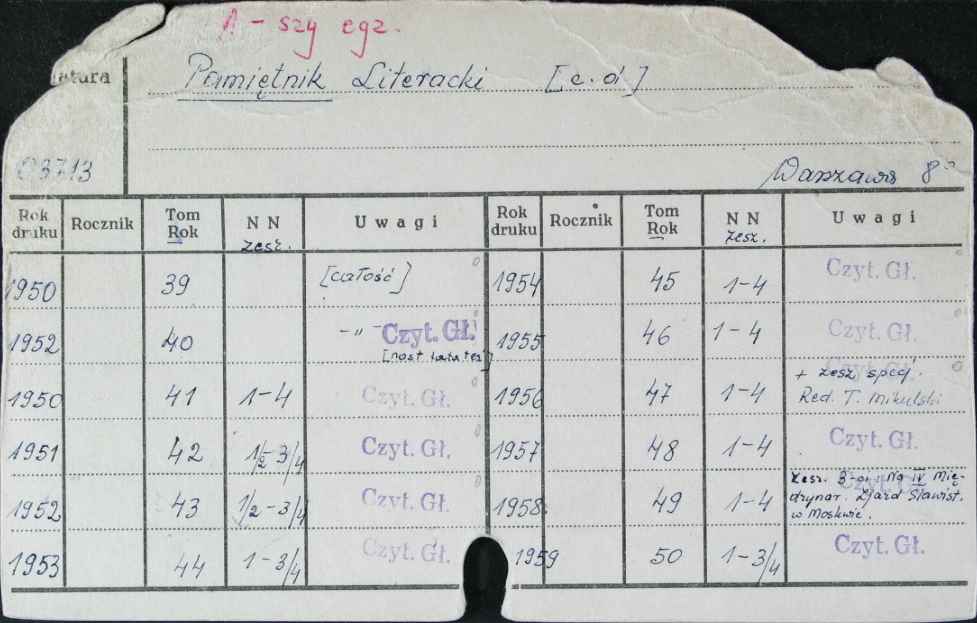 1-szy egz.
Pamiętnik Literacki [c.d]
03713
Warszawa 8°
Rok druku Rocznik Tom Rok N N zesz. Uwagi Rok druku Rocznik Tom Rok N N zesz. Uwagi
1950 39 [całość] 1954 45 1-4 Czyt. Gł.
1952 40 -"- Czyt. Gł. 1955 46 1-4 Czyt. Gł.
1950 41 1-4 Czyt. Gł. 1956 47 1-4 + zesz. spec.
Red. T. Mikulski
1951 42 1/2-3/4 Czyt. Gł. 1957 48 1-4 Czyt. Gł.
1952 43 1/2-3/4 Czyt. Gł. 1958 49 1-4 Zesz. 3-ci: Na IV Mię-
dzynar. Zjazd Slawist.
w Moskwie.
1953 44 1-3/4 Czyt. Gł. 1959 50 1-3/4 Czyt. Gł.